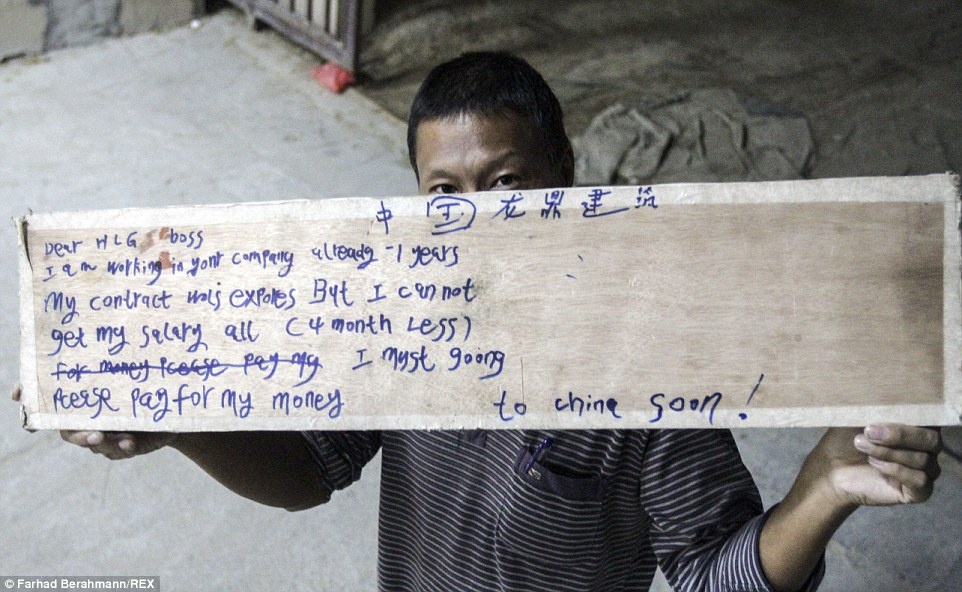 中国龙鼎建筑
Dear HLG boss
I am working in yont company already -1 years
My contract wois expores But I can not
get my salary all (4 month Less)
For money Pcease pay my I myst goong
Pcease pay for my money to china soon!
© Farhad Berahmann/REX